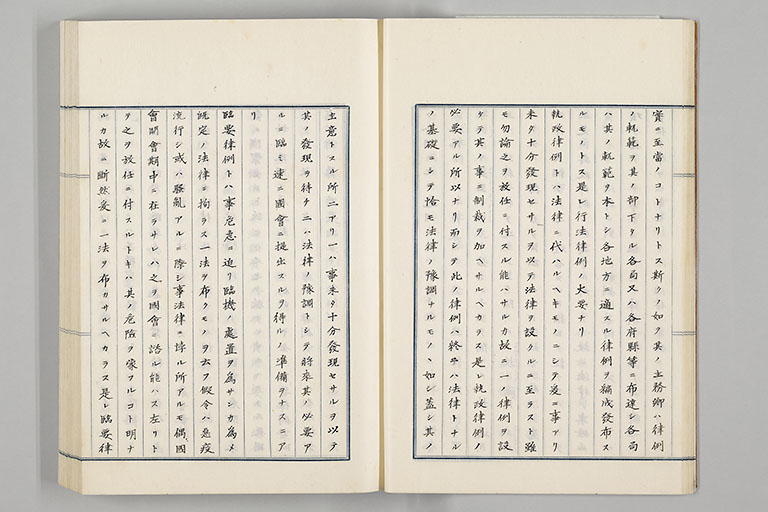 實ニ至當ノコトナリトス斯クノ如ク其ノ主務卿ハ律例
ノ軌範ヲ其ノ部下タル各局又ハ各府縣等ニ布達シ各局
ハ其ノ軌範ヲ本トシ各地方ニ適スル律例ヲ編成發布ス
ルモノトス是レ行法律例ノ大要ナリ
執政律例トハ法律ニ代ハルヘキモノニシテ爰ニ事アリ
未タ十分發現セサルヲ以テ法律ヲ設クルニ至ラスト雖
モ勿論之ヲ放任ニ付スル能ハサルカ故ニ一ノ律例ヲ設
ケテ其ノ事ニ制裁ヲ加ヘサルヘカラス是レ執政律例ノ
必要アル所以ナリ而シテ此ノ律例ハ終ニハ法律トナル
ノ基礎ニシテ恰モ法律ノ豫調ナルモノヽ如シ蓋シ其ノ
主意トスル所二アリ一ハ事未タ十分發現セサルヲ以テ
其ノ發現ヲ待チ二ハ法律ノ豫調トシテ將來其ノ必要ア
ルニ臨ミ速ニ國會ニ提出スルヲ得ルノ準備ヲナスニア
リ
臨要律例トハ事危急ニ迫リ臨機ノ處置ヲ為サンカ為メ
既定ノ法律ニ拘ラス一法ヲ布クモノヲ云フ假令ハ惡疫
流行シ或ハ騷亂アルニ際シ事法律ニ悖ル所アルモ偶國
會開會期中ニ在ラサレハ之ヲ國會ニ諮ル能ハス左リト
テ之ヲ放任ニ付スルトキハ其ノ危險ヲ蒙ヲルコト明ナ
ルカ故ニ斷然爰ニ一法ヲ布カサルヘカラス是レ臨要律